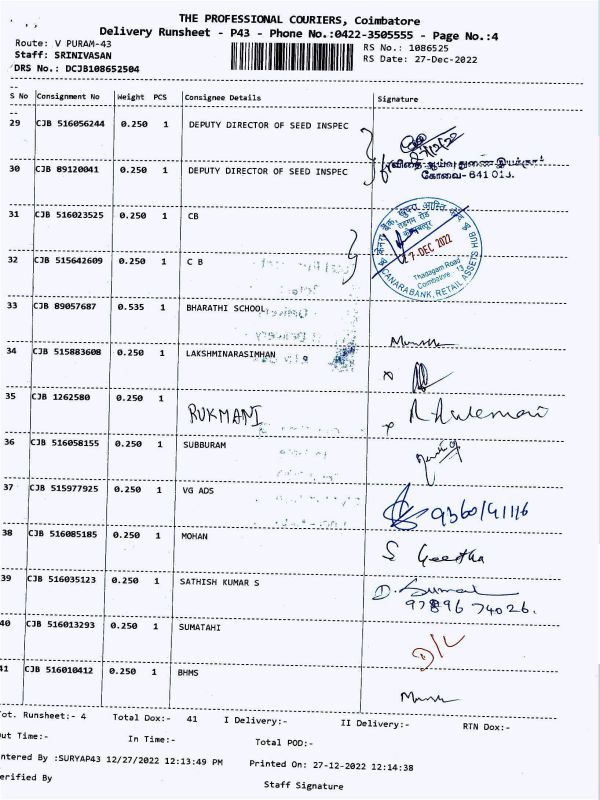 THE PROFESSIONAL COURIERS, Coimbatore
Delivery Runsheet - P43 - Phone No.:0422-3505555 - Page No.:4
Route: V PURAM-43
RS No.: 1086525
Staff: SRINIVASAN
RS Date: 27-Dec-2022
DRS No.: DCJB108652504
S No Consignment No Weight PCS Consignee Details Signature
29 CJB 516056244 0.250 1 DEPUTY DIRECTOR OF SEED INSPEC
30 CJB 89120041 0.250 1 DEPUTY DIRECTOR OF SEED INSPEC
கோவை- 641 013.
31 CJB 516023525 0.250 1 CB
27 DEC 2022
Thadagam Road
Coimbatore - 13
CANARA BANK, RETAIL ASSETS HUB
32 CJB 515642609 0.250 1 C B
33 CJB 89057687 0.535 1 BHARATHI SCHOOL
34 CJB 515883608 0.250 1 LAKSHMINARASIMHAN
35 CJB 1262580 0.250 1 RUKMANI
36 CJB 516058155 0.250 1 SUBBURAM
37 CJB 515977925 0.250 1 VG ADS
9360191116
38 CJB 516085185 0.250 1 MOHAN
S Geetha
39 CJB 516035123 0.250 1 SATHISH KUMAR S
97896 74026.
40 CJB 516013293 0.250 1 SUMATAHI
D/L
41 CJB 516010412 0.250 1 BHMS
ot. Runsheet:- 4 Total Dox:- 41 I Delivery:- II Delivery:- RTN Dox:-
ut Time:- In Time:- Total POD:-
ntered By :SURYAP43 12/27/2022 12:13:49 PM Printed On: 27-12-2022 12:14:38
erified By Staff Signature